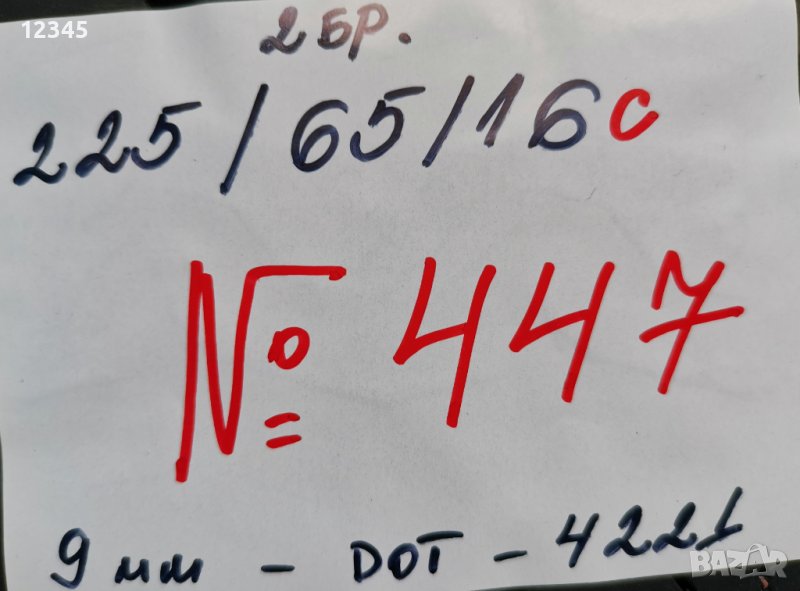 12345
2 БР.
225/65/16 C
№ 447
9 мм - DOT - 4221
BAZAR